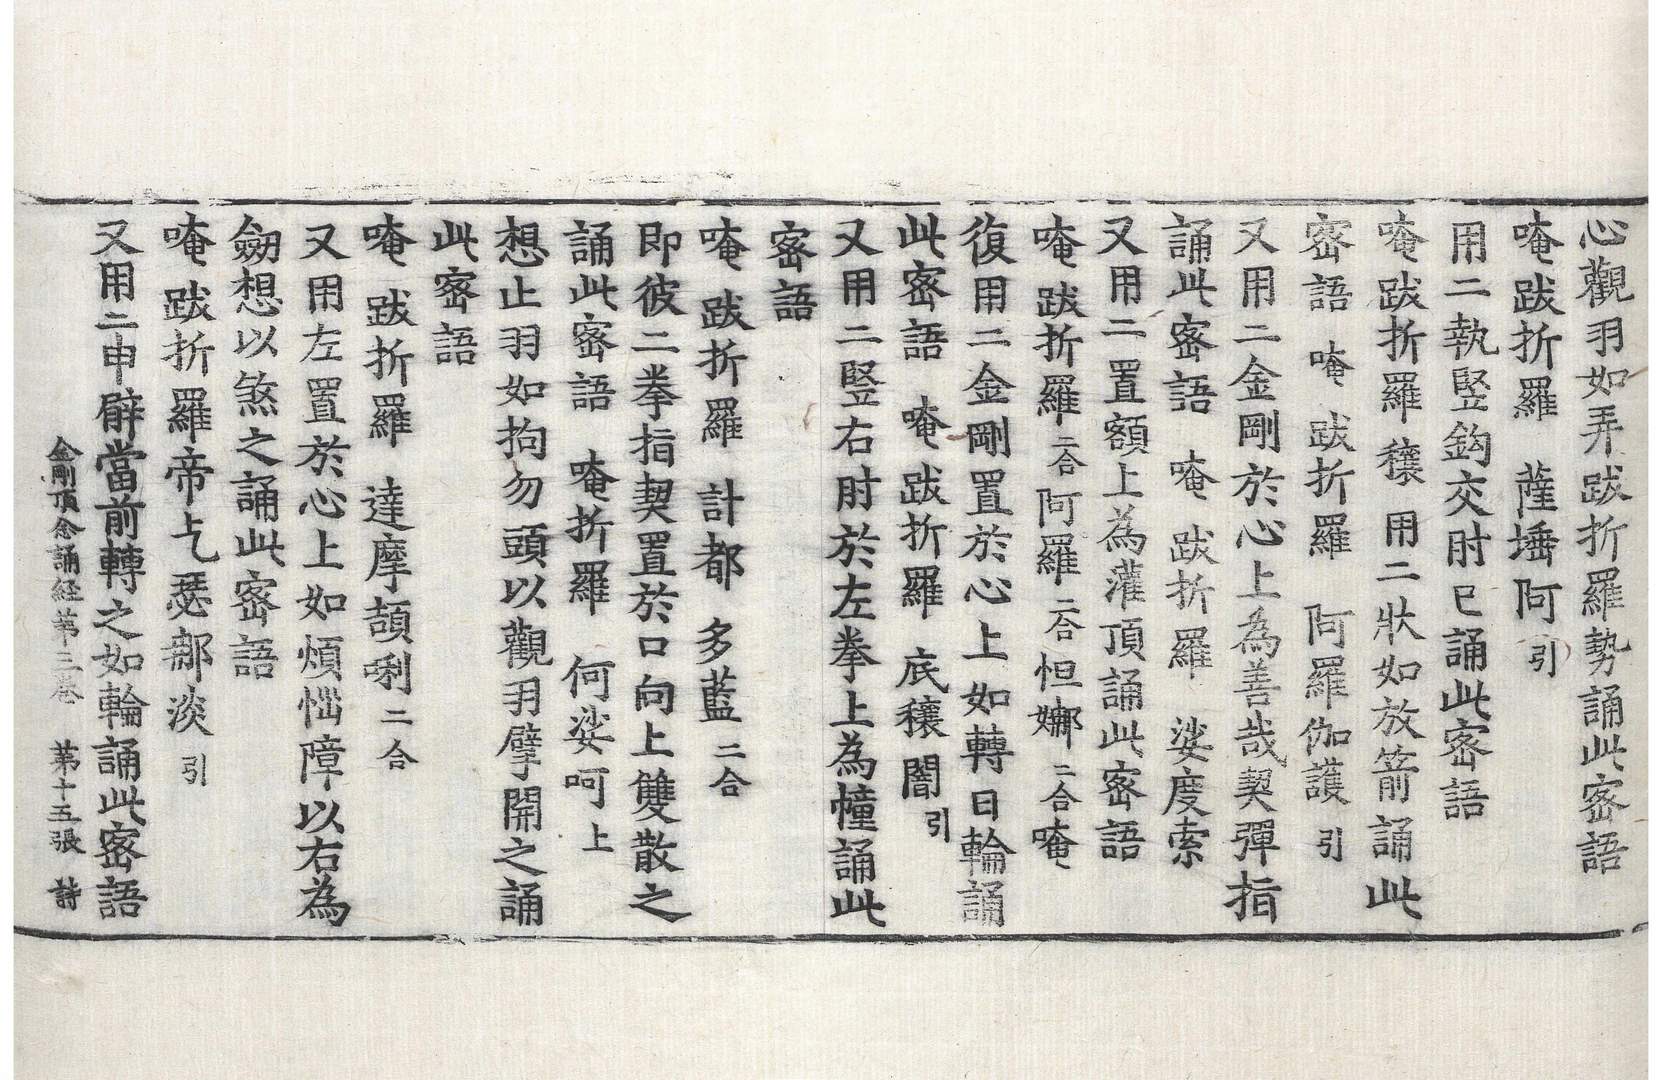 心觀羽如弄跋折羅勢誦此密語
唵跋折羅　薩埵阿引
用二執竪鈎交肘已誦此密語
唵跋折羅穰　用二狀如放箭誦此
密語　唵　跋折羅　阿羅伽護引
又用二金剛於心上為善哉契彈指
誦此密語　唵　跋折羅　娑度索
又用二置額上為灌頂誦此密語
唵跋折羅二合阿羅二合怛娜二合唵
復用二金剛置於心上如轉日輪誦
此密語　唵跋折羅　底穰闇引
又用二竪右肘於左拳上為幢誦此
密語
唵　跋折羅　計都　多藍二合
即彼二拳指契置於口向上雙散之
誦此密語　唵折羅　何娑呵上
想止羽如拘勿頭以觀羽擘開之誦
此密語
唵　跋折羅　達摩頡唎二合
又用左置於心上如煩惱障以右為
劒想以煞之誦此密語
唵　跋折羅帝乞瑟那淡引
又用二申臂當前轉之如輪誦此密語
金剛頂念誦経第三卷　第十五張　詩